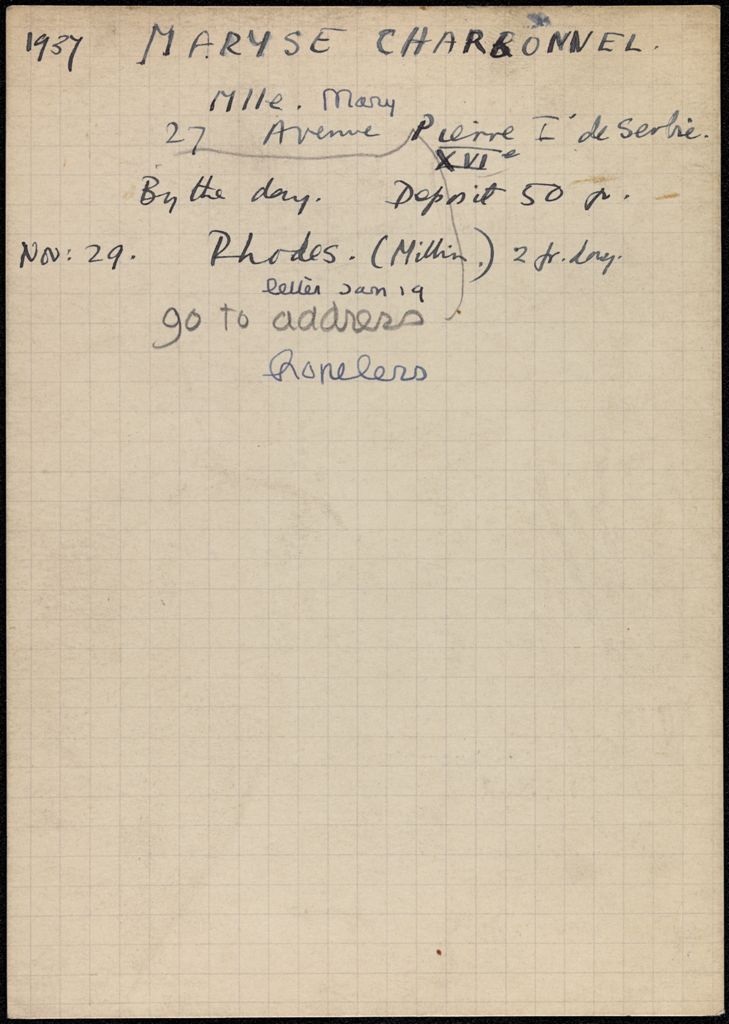 1937 MARYSE CHARBONNEL.
Mlle. Mary
27 Avenue Pierre Iᵉʳ de Serbie.
XVIᵉ
By the day. Deposit 50 fr.
Nov: 29. Rhodes. (Millin.) 2 fr. day.
letter Jan 19
go to address
hopeless